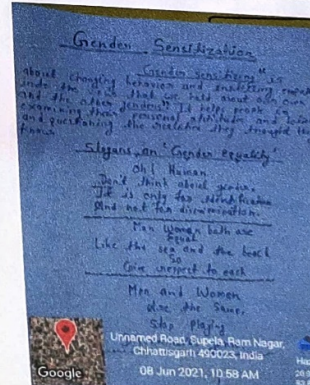 Gender Sensitization
"Gender sensitizing" is
about changing behavior and instilling empathy
into the views that we held about our own
and the other gender." It helps people
examining their personal attitudes and
and questioning the they thought they
Slogans on 'Gender equality'
Oh! Human
Don't think about gender
It is only for identification
And not for discrimination.
Man Women both are
Equal
Like the sea and the beach
So
Give respect to each
Men and Women
are the Same,
Stop Playing
Unnamed Road, Supela, Ram Nagar,
Chhattisgarh 490023, India
Google
08 Jun 2021, 10:58 AM